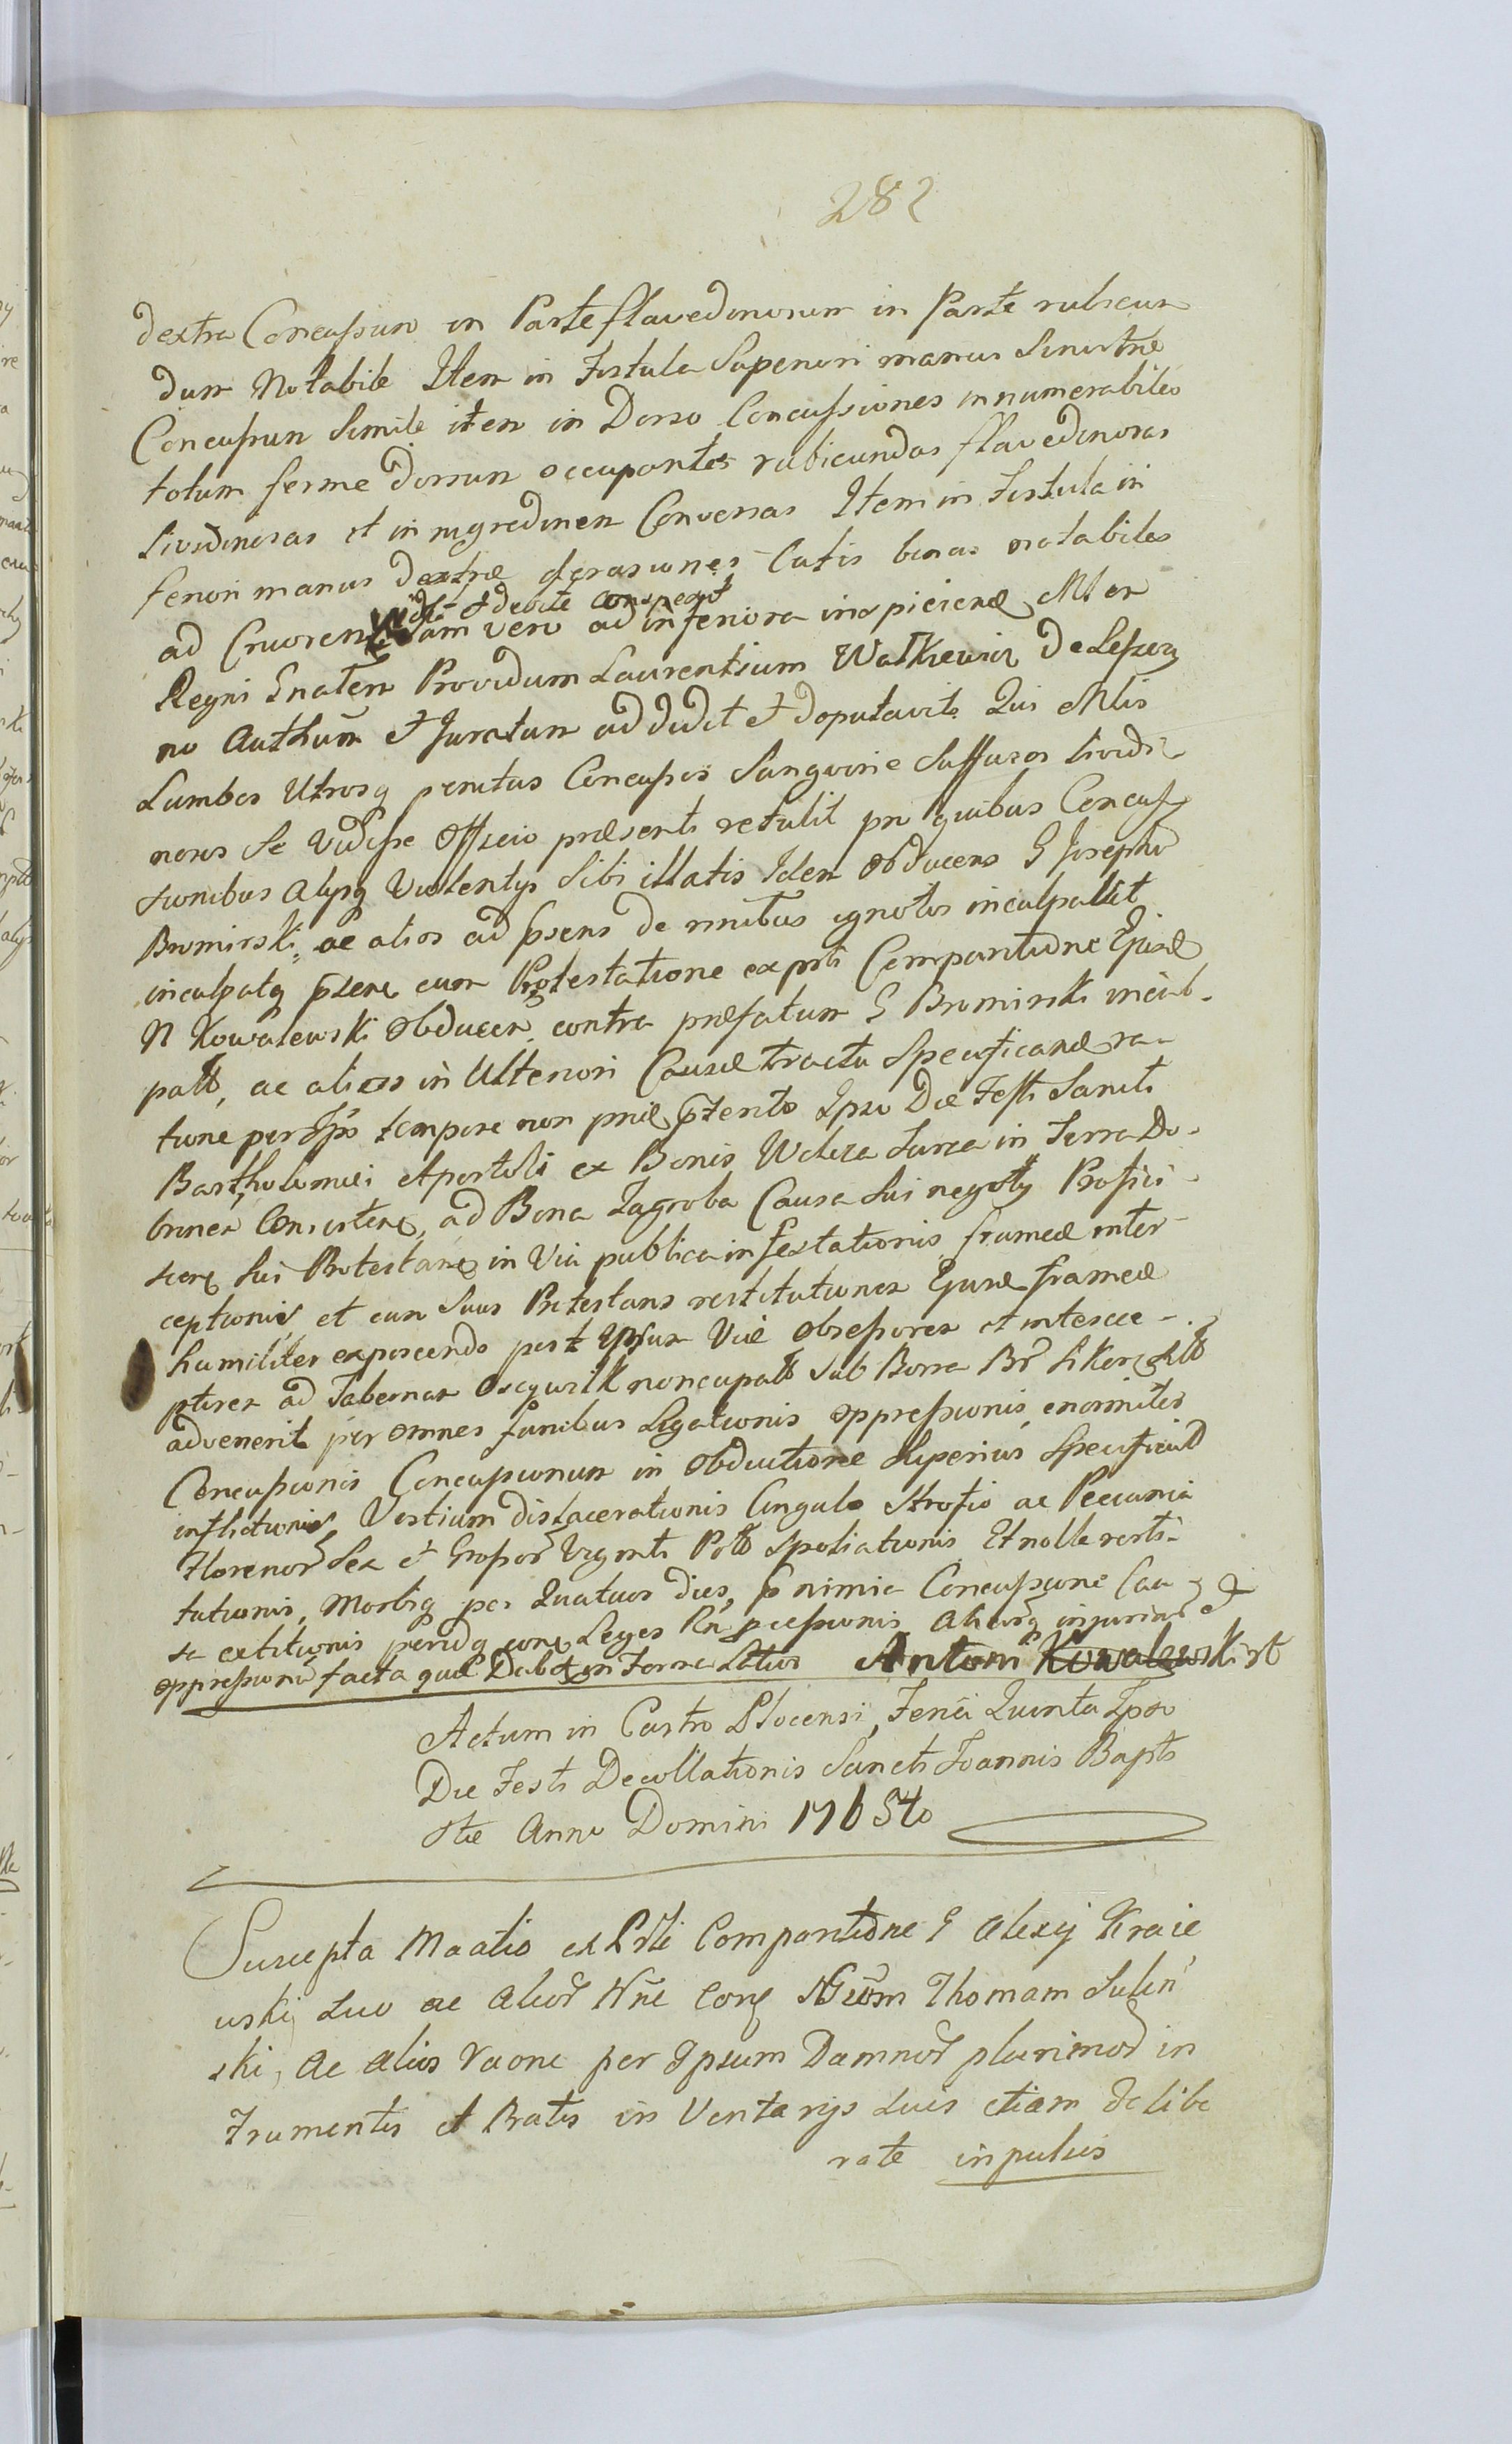 282
dextra Concussum in Parte flavedinosum in Parte rubicun
dum Notabile Item in Fistula Superiori manus Sinistræ
Concussum Simile item in Dorso Concussiones innumerabiles
totum ferme Dorsum occupantes rubicundas flavedinosas
lividinosas et in nigredinem Conversas Item in Fistula in
feriori manus dextræ abrasiones Cutis binas notabiles
vidit et debite conspexit
ad Cruorem Jam vero ad inferiora inspiciend Mler
Regni Gnalem Providum Laurentium Watkiewicz De Leszcz
no Authum et Juratum addidit et deputavit Qui Mlis
Lumbos Utrosq penitus Concussos Sanguine Suffusos lividi
nosos Se Vidisse Officio præsenti retulit pri quibus Concus
sionibus Alysq Violentys Sibi illatis Idem Obducens G Josephū
Bromirski, ac alios ad psens de nnibus ignotos inculpavit
inculpatq psens cum Protestatione ex psti Comparitione Ejusd
N Kowalewski Obducen contra præfatum G Bromirski incul-
patt, ac alios in Ulteriori Causæ tractu Specificand ra-
tione per Ipso tempore non pridē ptento Ipso Die Festi Sancti
Bartholomæi Apostoli ex Bonis Wolića Turza in Terra Do-
brinen Consisten, ad Bona Zagroba Causa Sui negoty Profici-
scen Sui Protestan in Via publica infestationis frameæ inter-
ceptionis et cum Suus Protestans restitutionem Ejusd frameæ
humiliter exposcendo post Ipsum Viæ Obsessorem et interce-
ptorem ad Tabernam noncupatt Sub Borra
advenerit per omnes funibus Ligationis oppressionis enormiter
Concussionis Concussionum in Obductione Superius Specificat
inflictionis, Vestium dislacerationis Cingulo Strofio ac Pecunia
Florenor Sex et Grossor Viginti Poll Spoliationis Et nolle resti-
tutionis, Morbiq per Quatuor dies, p nimia Concussione Cau
sa extitionis perindq Leges Rn peccussionis Aliarq injuriar et
oppressionū facta quæ Debet in Forma Latior Antoni Kowalewski
Actum in Castro Plocensi, Feria Quinta Ipso
Die Festi Decollationis Sancti Joannis Bapti
stæ Anno Domini 1765to
Suscepta Maatio ex Psti Comparitione G Alexij Kraie
uski Suo ac Alior Nne Con Gsum Thomam Sulin
ski, Ac alios Raone per Ipsum Damnor plurimor in
Frumentis et Pratis in Ventarijs Suis etiam delibe
rate inpulsis